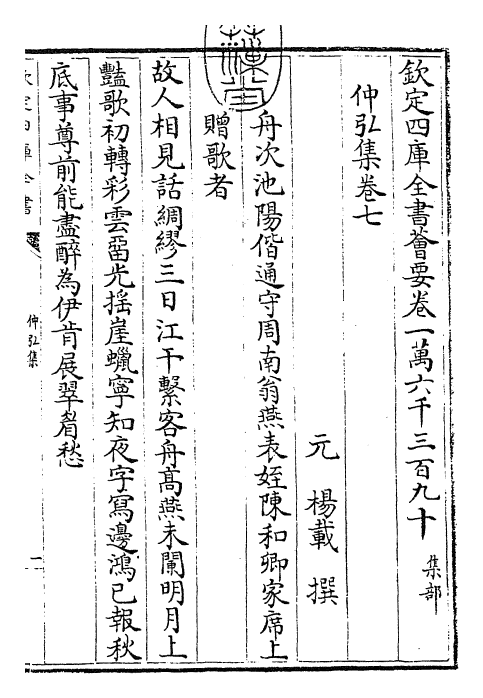 欽定四庫全書薈要卷一萬六千三百九十
集部
仲弘集卷七
元 楊載 撰
舟次池陽偕通守周南翁燕表姪陳和卿家席上
贈歌者
故人相見話綢繆三日江干繫客舟髙燕未闌明月上
豔歌初轉彩雲留光揺崖蠟寧知夜字寫邊鴻已報秋
底事尊前能盡醉為伊肯展翠眉愁
欽定四庫全書
仲弘集
一